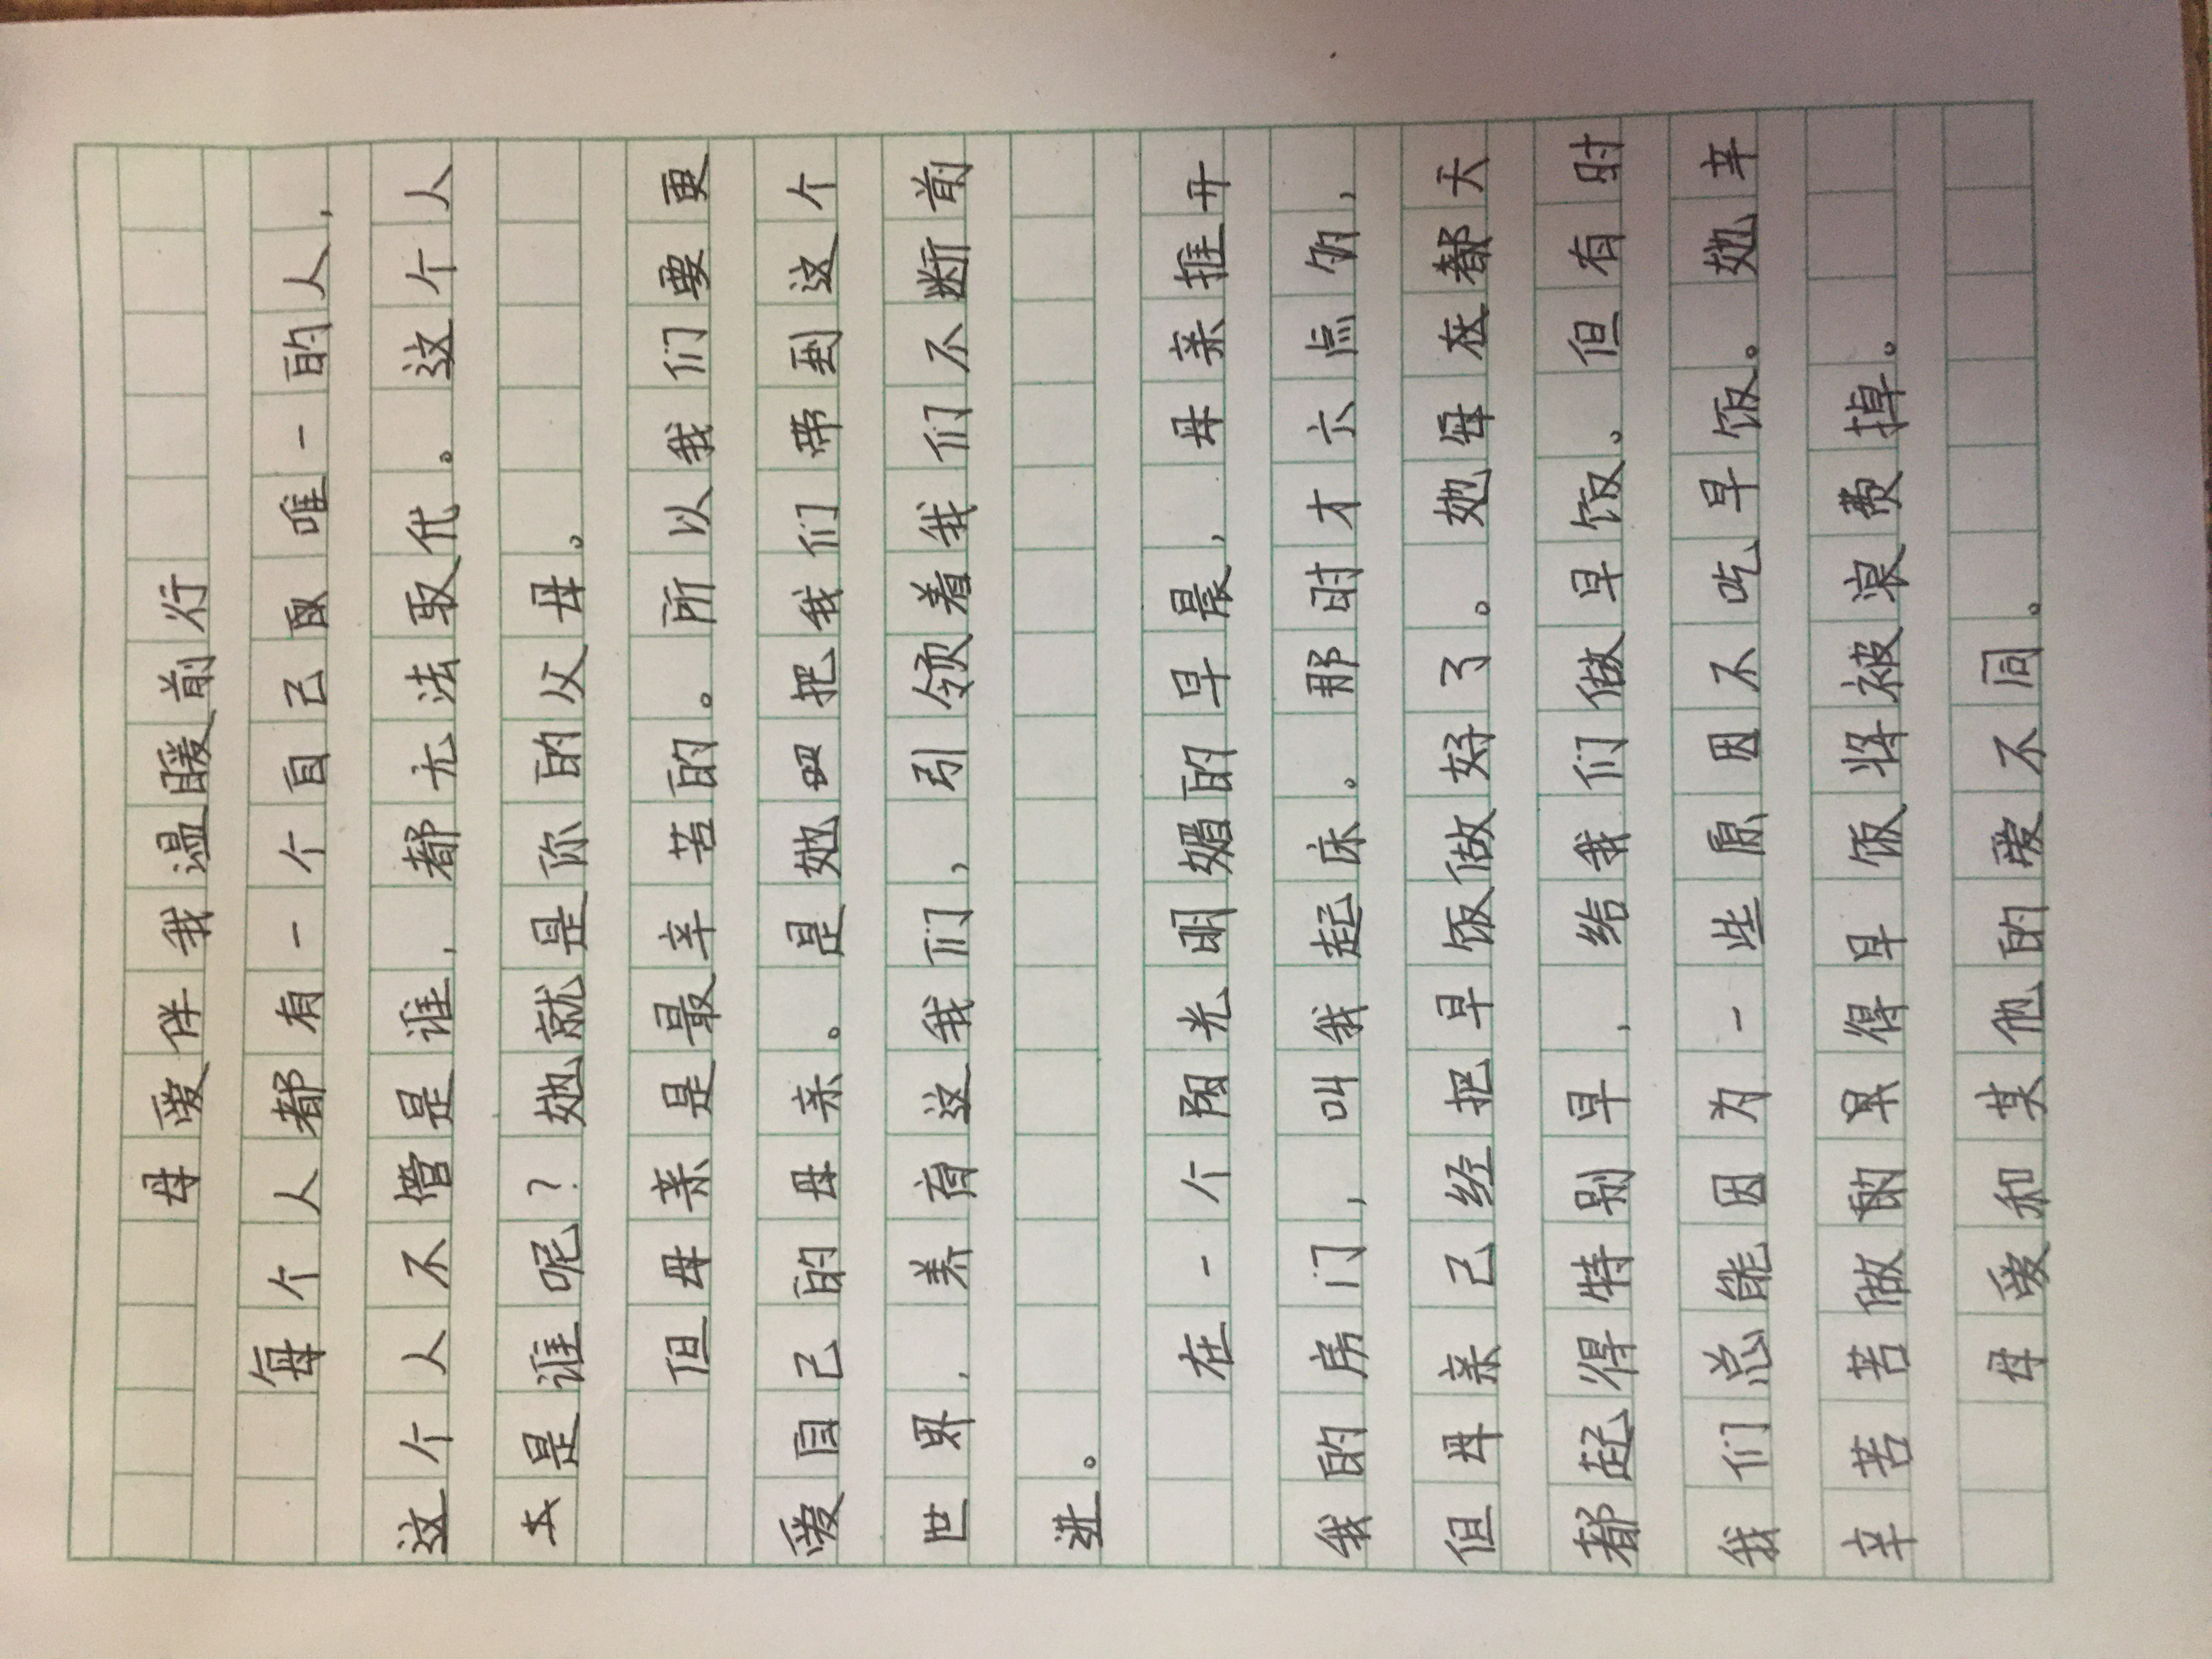 母爱伴我温暖前行
每个人都有一个自己唯一的人,
这个人不管是谁,都无法取代。这个人
是谁呢?她就是你的父母。
但母亲是最辛苦的。所以我们要更
爱自己的母亲。是她把我们带到这个
世界,养育这我们,引领着我们不断前
进。
在一个阳光明媚的早晨,母亲推开
我的房门,叫我起床。那时才六点多,
但母亲已经把早饭做好了。她每在都天
都起得特别早,给我们做早饭。但有时
我们总能因为一些原因不吃早饭。她辛
辛苦苦做的早得早饭将被浪费掉。
母爱和其他的爱不同。